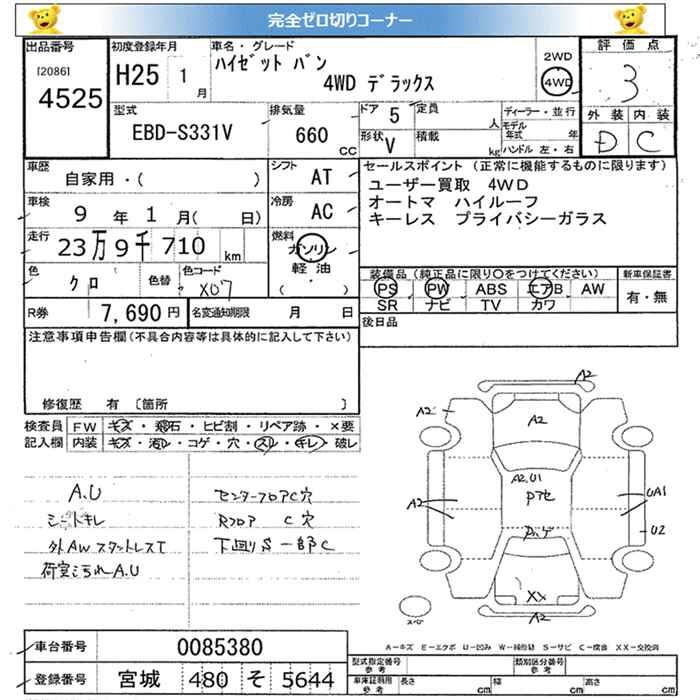 完全ゼロ切りコーナー
出品番号 [2086] 4525
初度登録年月 H25 1月
車名・グレード ハイゼット バン 4WD デラックス
2WD 4WD
評価点 3
外装 内装
D C
型式 EBD-S331V
排気量 660 CC
ドア 5 定員 人
形状 V 積載 kg
ディーラー・並行
モデル年式 年
ハンドル 左・右
車歴 自家用・( )
シフト AT
車検 9年 1月( 日)
冷房 AC
走行 23万9千710 km
燃料 ガソリン 軽油 ( )
色 クロ 色替 色コード X07
R券 7,690円 名変通知期限 月 日
セールスポイント (正常に機能するものに限ります)
ユーザー買取 4WD
オートマ ハイルーフ
キーレス プライバシーガラス
装備品(純正品に限り○をつけてください) 新車保証書
PS PW ABS エアB AW 有・無
SR ナビ TV カワ
後日品
注意事項申告欄(不具合内容等は具体的に記入して下さい)
修復歴 有 〔箇所 〕
検査員 FW キズ・飛石・ヒビ割・リペア跡・×要
記入欄 内装 キズ・汚レ・コゲ・穴・スレ・キレ・破レ
A.U
シートキレ
外AWスタットレスT
荷室ヨゴれA.U
センターフロアC穴
Rフロア C穴
下回りS 一部C
A2
A2
A2
A2.U1
A2
UA1
U2
XX
A2
スペア
A-キズ E-エクボ U-凹み W-補修跡 S-サビ C-腐食 XX-交換済
車台番号 0085380
登録番号 宮城 480 そ 5644
型式指定番号 参考 類別区分番号 参考
車庫証明用 参考 長さ cm 幅 cm 高さ cm